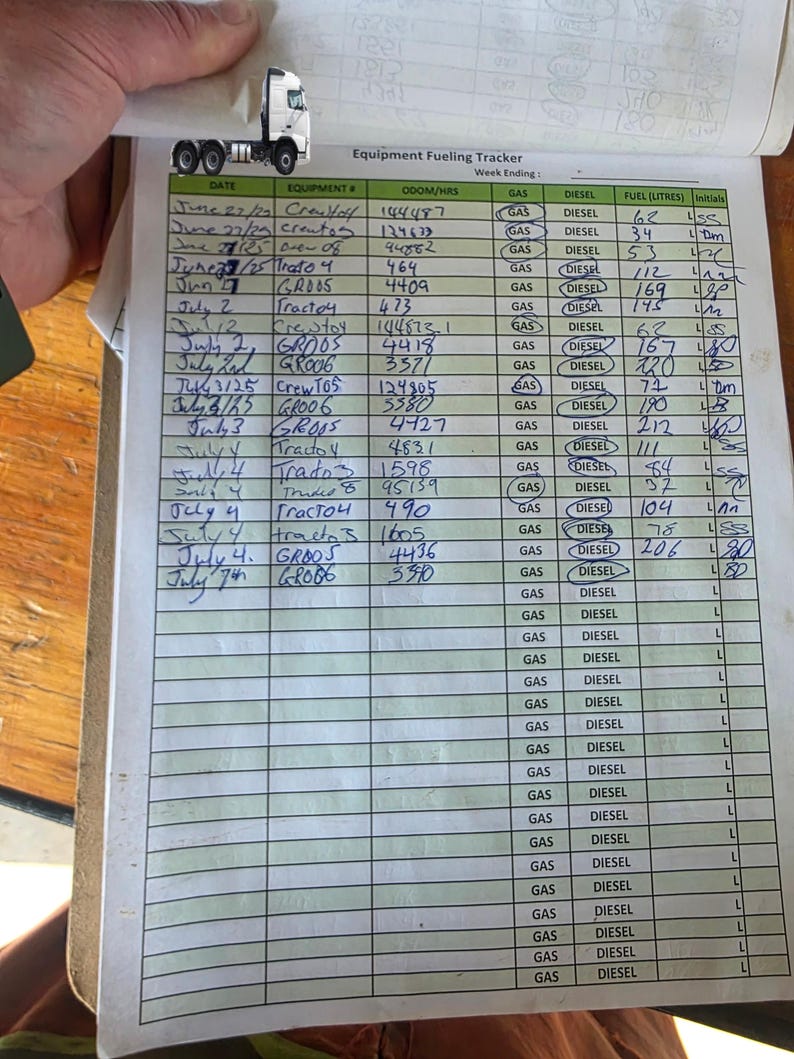 Equipment Fueling Tracker
Week Ending :
DATE EQUIPMENT # ODOM/HRS GAS DIESEL FUEL (LITRES) Initials
June 27/25 Crewt04 144487 GAS DIESEL 62 L SS
June 27/25 crewt05 124633 GAS DIESEL 34 L Dm
June 27/25 08 94882 GAS DIESEL 53 L
June 27/25 Tracto4 464 GAS DIESEL 112 L
Jun 27 GR005 4409 GAS DIESEL 169 L
July 2 Tracto4 473 GAS DIESEL 145 L
Jul 2 Crewt04 144873.1 GAS DIESEL 62 L SS
July 2 GR005 4418 GAS DIESEL 167 L
July 2nd GR006 3371 GAS DIESEL 220 L
July 3/25 CrewT05 124805 GAS DIESEL 71 L Dm
July 3/25 GR006 3380 GAS DIESEL 190 L
July 3 GR005 4427 GAS DIESEL 212 L
July 4 Tracto4 4831 GAS DIESEL 111 L SS
July 4 Tracto3 1598 GAS DIESEL 84 L SS
July 4 8 95139 GAS DIESEL 37 L
July 4 Tracto4 490 GAS DIESEL 104 L
July 4 tracto3 1605 GAS DIESEL 78 L SS
July 4. GR005 4436 GAS DIESEL 206 L
July 7th GR006 3390 GAS DIESEL L BD
GAS DIESEL L
GAS DIESEL L
GAS DIESEL L
GAS DIESEL L
GAS DIESEL L
GAS DIESEL L
GAS DIESEL L
GAS DIESEL L
GAS DIESEL L
GAS DIESEL L
GAS DIESEL L
GAS DIESEL L
GAS DIESEL L
GAS DIESEL L
GAS DIESEL L
GAS DIESEL L
GAS DIESEL L
GAS DIESEL L